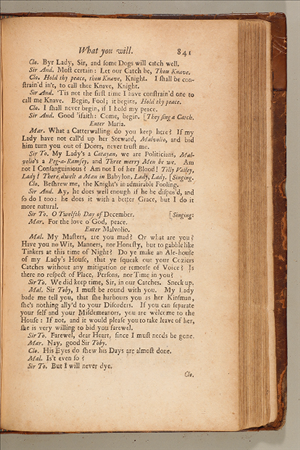 What you will. 841
Clo. By r Lady, Sir, and some Dogs will catch well.
Sir And. Most certain: Let our Catch be, Thou Knave.
Clo. Hold thy peace, thou Knave, Knight. I shall be con-
strain'd in't, to call thee Knave, Knight.
Sir And. 'Tis not the first time I have constrain'd one to
call me Knave. Begin, Fool; it begins, Hold thy peace.
Clo. I shall never begin, if I hold my peace.
Sir And. Good 'ifaith: Come, begin. [They sing a Catch.
Enter Maria.
Mar. What a Catterwalling do you keep here? If my
Lady have not call'd up her Steward, Malvolio, and bid
him turn you out of Doors, never trust me.
Sir To. My Lady's a Catayan, we are Politicians, Mal-
volio's a Peg-a-Ramsey, and Three merry Men be we. Am
not I Consanguinious? Am not I of her Blood? Tilly Valley,
Lady! There dwelt a Man in Babylon, Lady, Lady. [Singing.
Clo. Beshrew me, the Knight's in admirable Fooling.
Sir And. Ay, he does well enough if he be dispos'd, and
so do I too: he does it with a better Grace, but I do it
more natural.
Sir To. O Twelfth Day of December. [Singing:
Mar. For the love o' God, peace.
Enter Malvolio.
Mal. My Masters, are you mad? Or what are you?
Have you no Wit, Manners, nor Honesty, but to gabble like
Tinkers at this time of Night? Do ye make an Ale-house
of my Lady's House, that ye squeak out your Coziers
Catches without any mitigation or remorse of Voice? Is
there no respect of Place, Persons, nor Time in you?
Sir To. We did keep time, Sir, in our Catches. Sneck up.
Mal. Sir Toby, I must be round with you. My Lady
bade me tell you, that she harbours you as her Kinsman,
she's nothing ally'd to your Disorders. If you can separate
your self and your Misdemeanors, you are welcome to the
House: If not, and it would please you to take leave of her,
she is very willing to bid you farewel.
Sir To. Farewel, dear Heart, since I must needs be gone.
Mar. Nay, good Sir Toby.
Clo. His Eyes do shew his Days are almost done.
Mal. Is't even so?
Sir To. But I will never dye.
Clo.